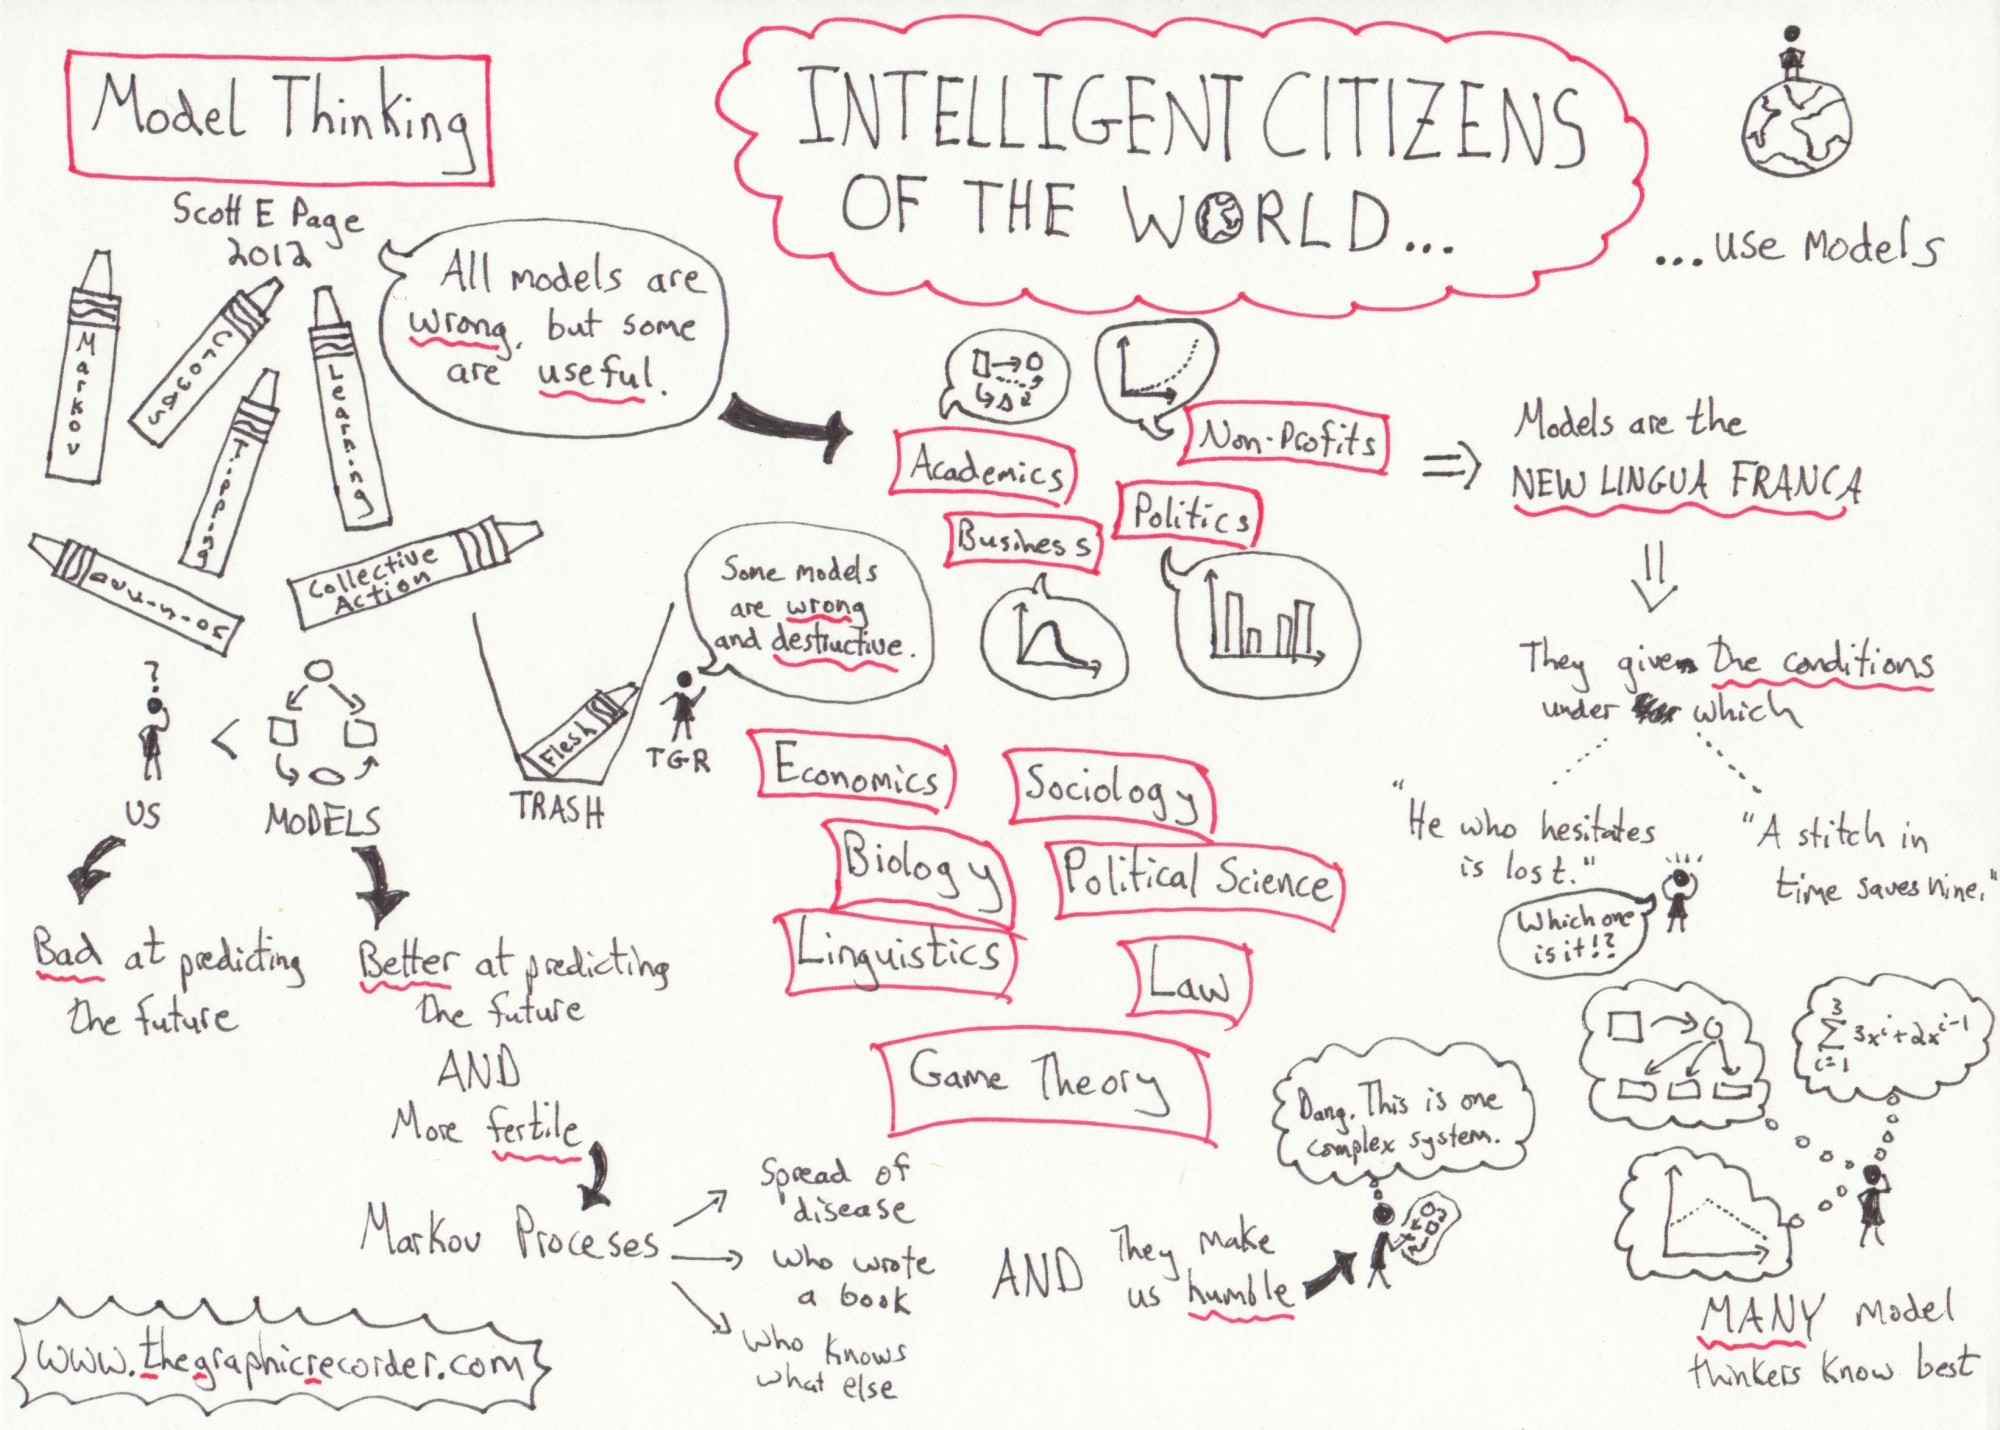 Model Thinking
Scott E Page
2012
INTELLIGENT CITIZENS
OF THE WORLD...
...use models
Markov
Crowds
Learning
Tipping
Collective
Action
All models are
wrong, but some
are useful.
Academics
Non-Profits
Business
Politics
Models are the
NEW LINGUA FRANCA
They give the conditions
under which
"He who hesitates
is lost."
"A stitch in
time saves nine."
Which one
is it!?
Some models
are wrong
and destructive.
Flesh
TRASH
TGR
?
US
<
MODELS
Bad at predicting
the future
Better at predicting
the future
AND
More fertile
Markov Proceses
Spread of
disease
Who wrote
a book
Who knows
what else
Economics
Sociology
Biology
Political Science
Linguistics
Law
Game Theory
AND
They make
us humble
Dang. This is one
complex system.
3
Σ 3xⁱ+2xⁱ⁻¹
i=1
MANY model
thinkers know best
www.thegraphicrecorder.com